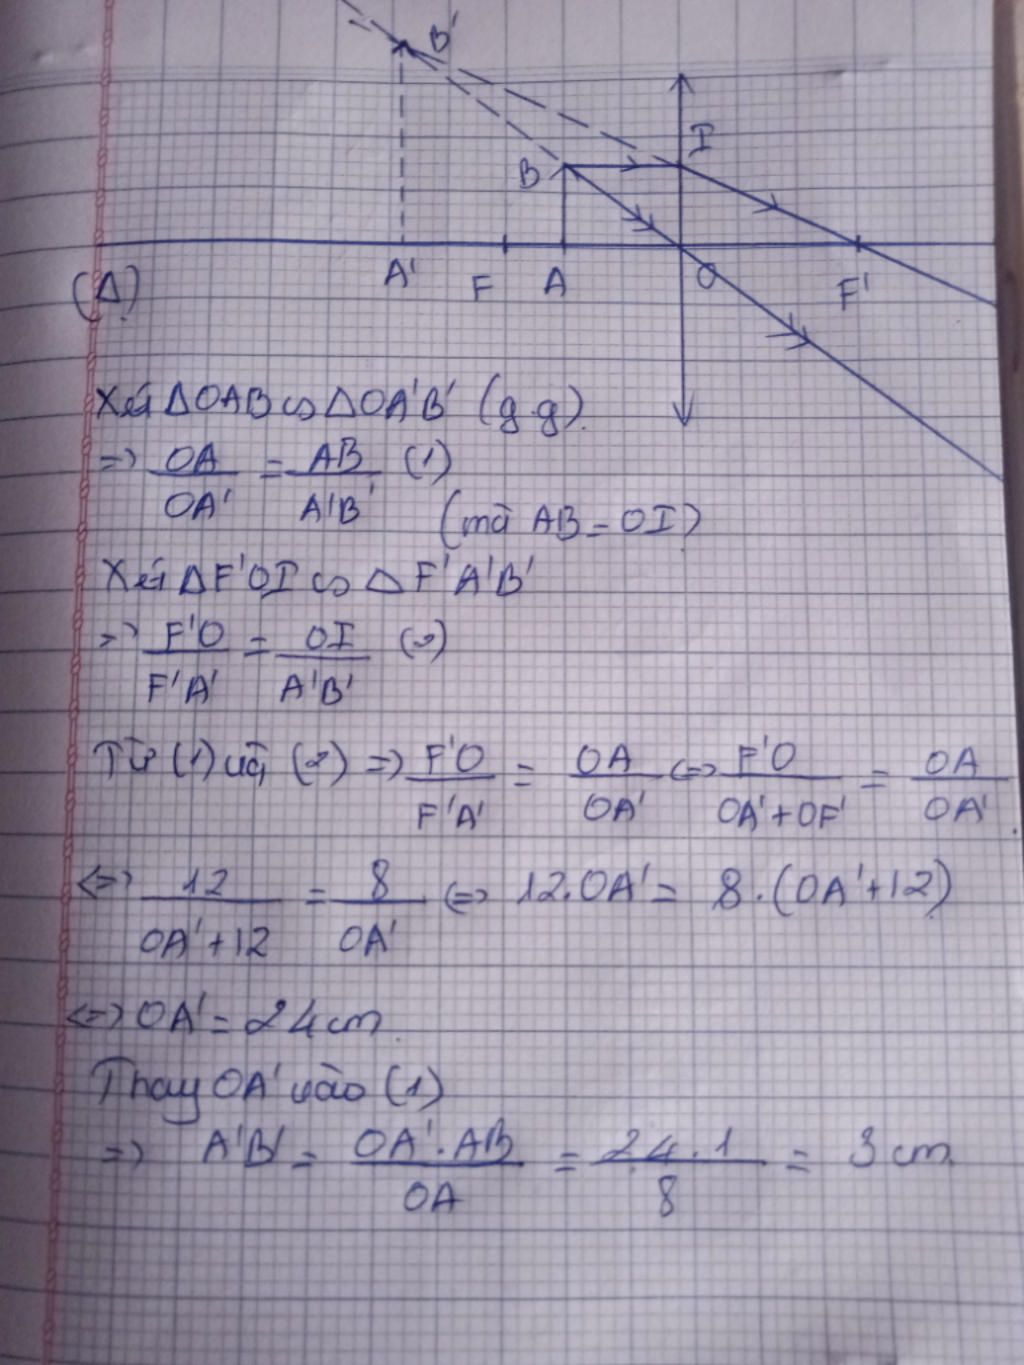 B'
I
B
A' F A O F'
(Δ)
Xét ΔOAB ∽ ΔOA'B' (g.g)
=> OA/OA' = AB/A'B' (1)
(mà AB = OI)
Xét ΔF'OI ∽ ΔF'A'B'
=> F'O/F'A' = OI/A'B' (2)
Từ (1) và (2) => F'O/F'A' = OA/OA' <=> F'O/OA'+OF' = OA/OA'.
<=> 12/OA'+12 = 8/OA' <=> 12.OA' = 8.(OA'+12)
<=> OA' = 24cm
Thay OA' vào (1)
=> A'B' = OA'.AB/OA = 24.1/8 = 3cm.